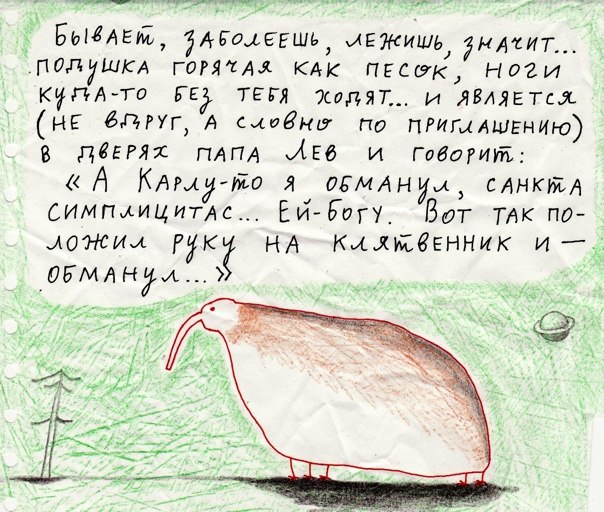 Бывает, заболеешь, лежишь, значит...
подушка горячая как песок, ноги
куда-то без тебя ходят... и является
(не вдруг, а словно по приглашению)
в дверях папа Лев и говорит:
«А Карлу-то я обманул, санкта
симплицитас... Ей-Богу. Вот так по-
ложил руку на клятвенник и —
обманул...»